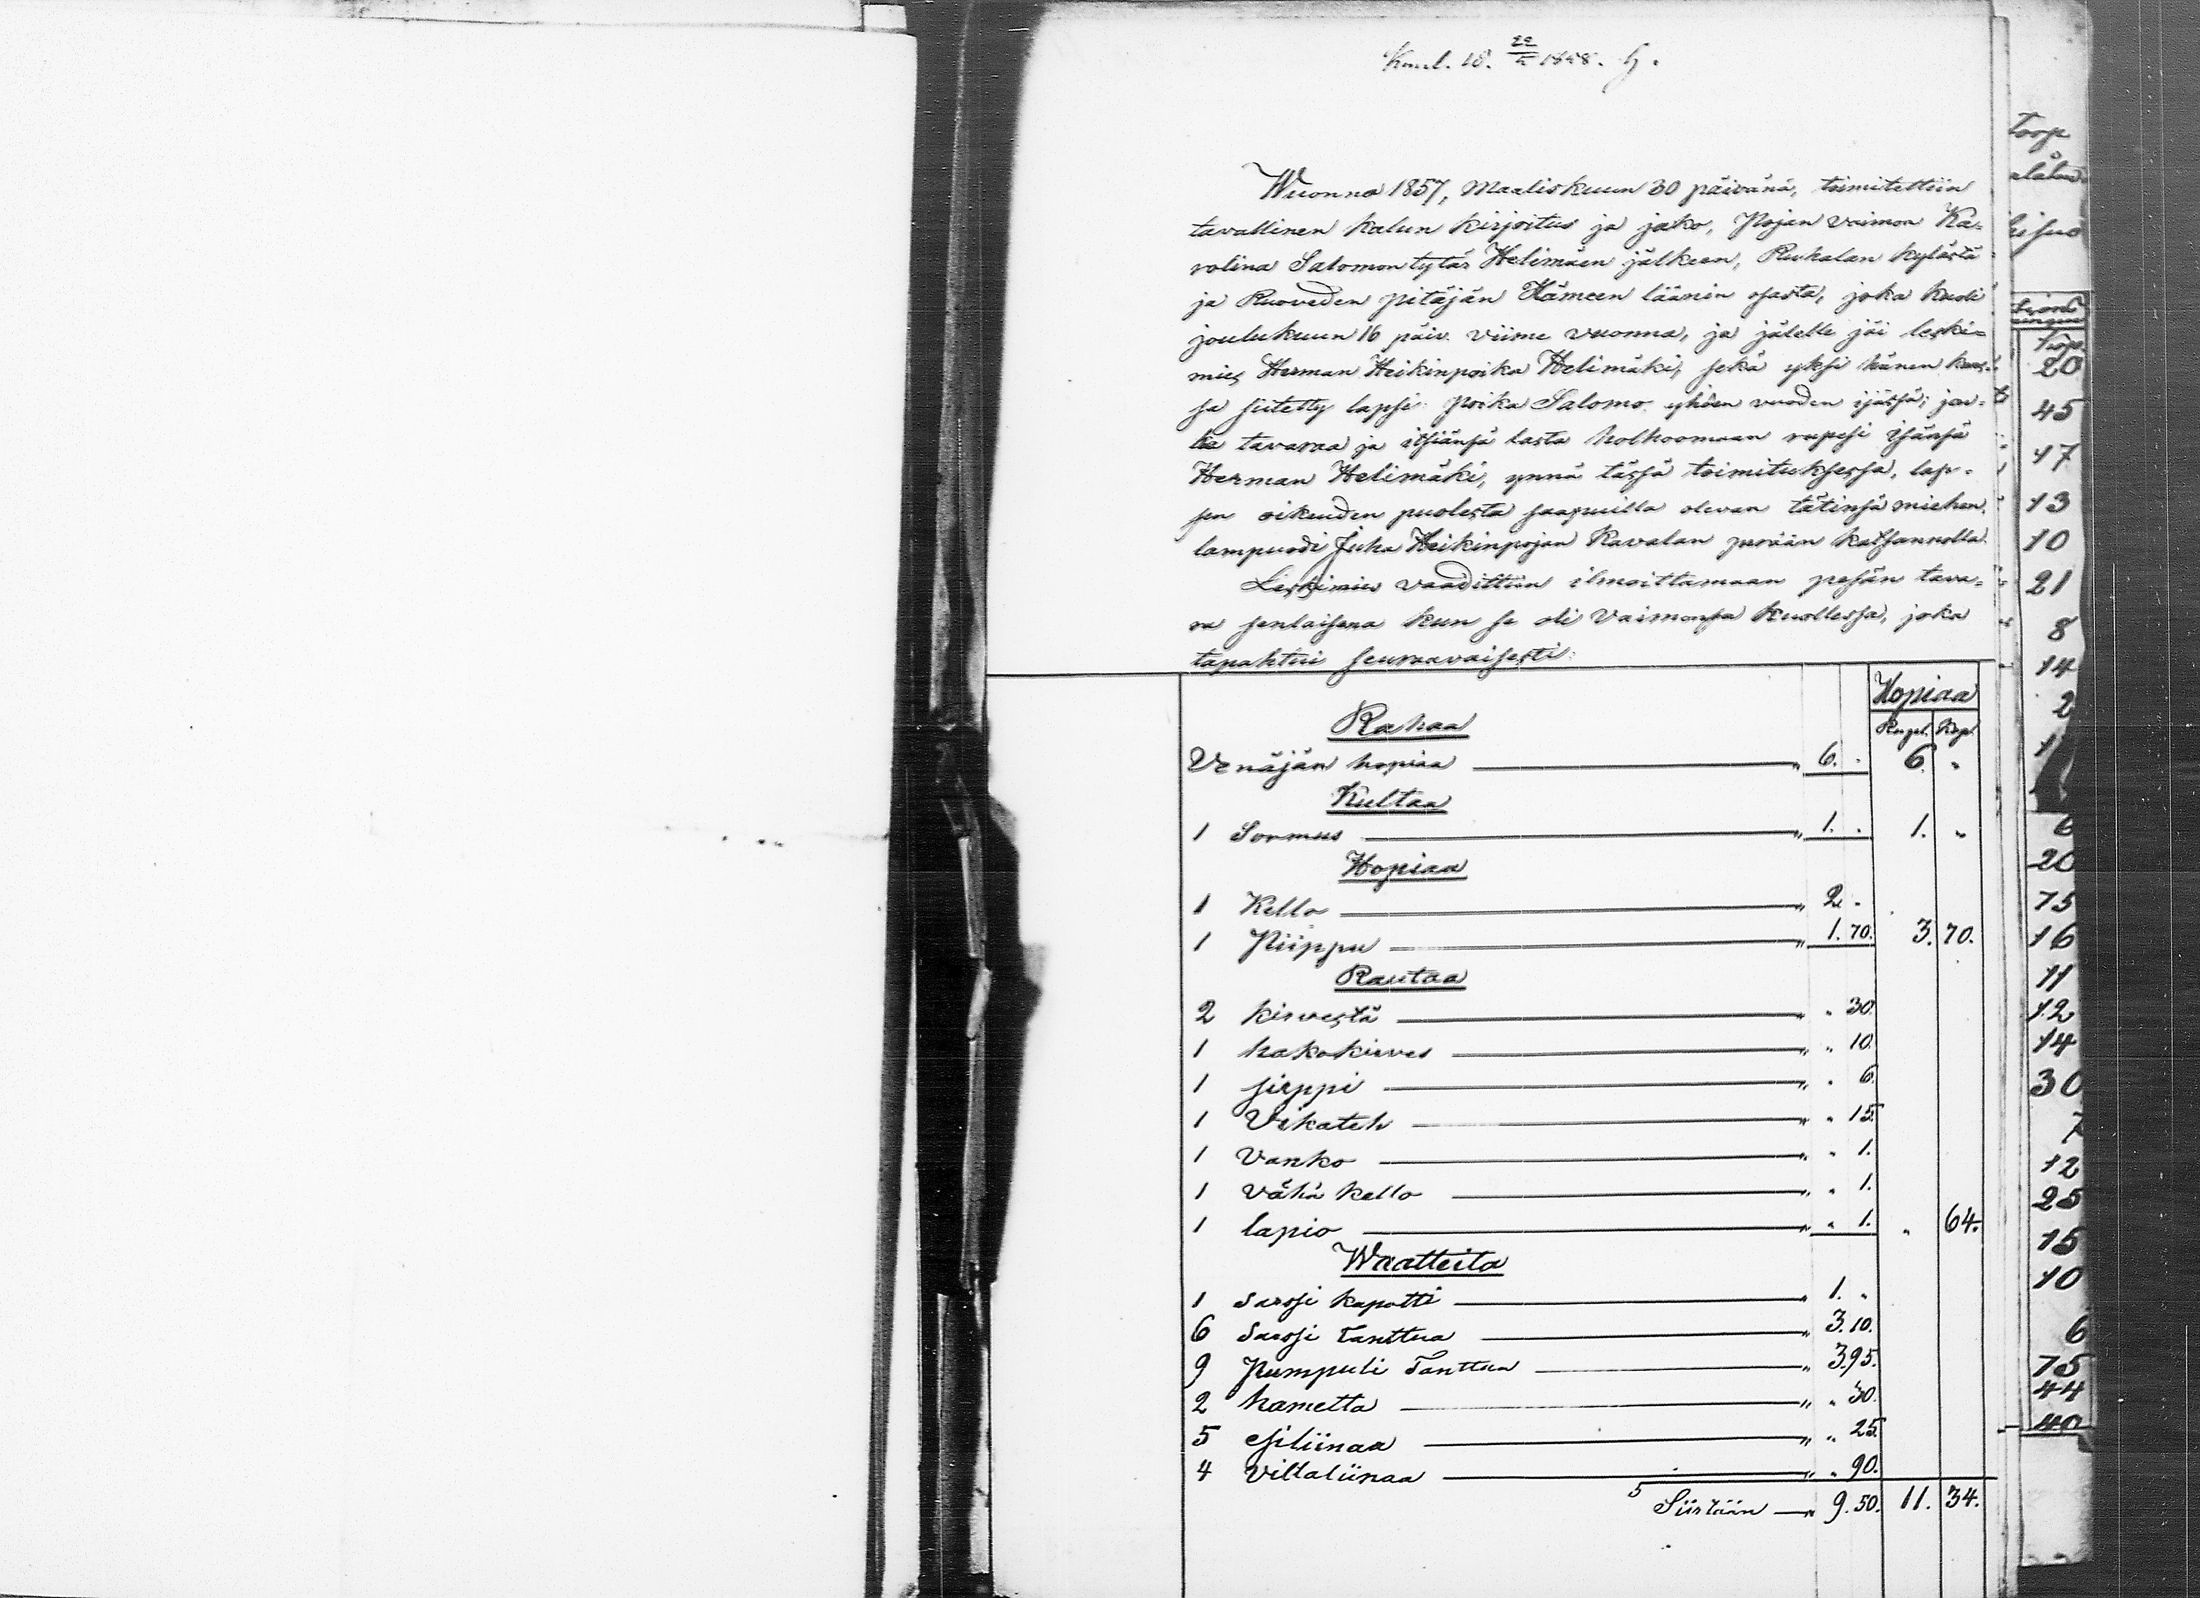 Wuonna 1857, Maaliskuun 30 päivänä, toimitettiin
tavallinen kalun kirjoitus ja jako, Pojan vaimon Ka-
rolina Salomontytär Helimäen jälkeen, Ruhalan kylästä
ja Ruoveden pitäjän Hämeen läänin osasta, joka kuoli
joulukuun 16 päiv. viime vuonna, ja jälelle jäi leski=
mies Herman Heikinpoika Helimäki, sekä yksi hänen kans-
sa siitetty lapsi: poika Salomo yhden vuoden ijässä; jon-
ka tavaraa ja itsiänsä lasta holhoomaan rupesi isänsä
Herman Helimäki, ynnä tässä toimituksessa, lap-
sen oikeuden puolesta saapuilla olevan tätinsä miehen
lampuodi Juha Heikinpojan Kavalan perään katsannolla.
Leskimies vaadittiin ilmoittamaan pesän tava-
ra senlaisena kun se oli vaimonsa kuollessa, joka
tapahtui seuraavaisesti:
Hopiaa
Rupl. Kop.
Rahaa
Venäjän hopiaa „ 6. „ 6. „
Kultaa
1 Sormus „ 1. „ 1. „
Hopiaa
1 Kello „ 2 „
1 Piippu „ 1. 70. 3. 70.
Rautaa
2 kirvestä „ „ 30.
1 hakokirves „ „ 10.
1 sirppi „ „ 6.
1 Vikateh „ „ 15.
1 Vanko „ „ 1.
1 Vähä kello „ „ 1.
1 lapio „ „ 1. „ 64.
Waatteita
1 Sarssi kaputti „ 1. „
6 Sarssi Tanttua „ 3. 10.
9 Pumpuli Tanttua „ 3. 95.
2 hametta „ „ 30.
5 esiliinaa „ „ 25.
4 villaliinaa „ „ 90.
Siirtään „ 9. 50. 11. 34.
20
45
17
13
10
21
8
14
2
6
20
75
16
11
12
14
30
7
12
25
15
10
6
75
44
40